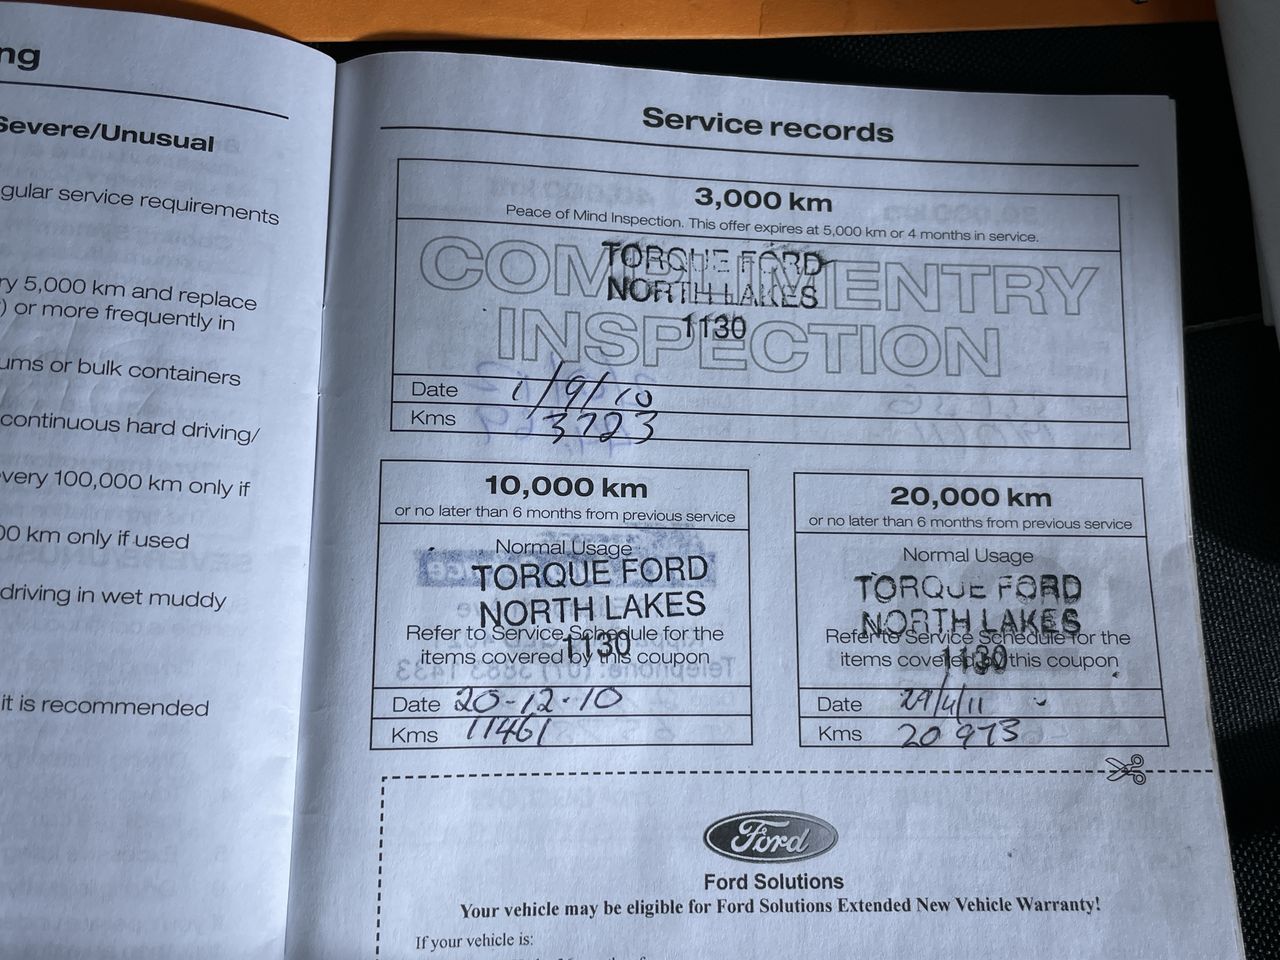 ng
Severe/Unusual
gular service requirements
ry 5,000 km and replace
) or more frequently in
ums or bulk containers
continuous hard driving/
very 100,000 km only if
00 km only if used
driving in wet muddy
it is recommended
Service records
3,000 km
Peace of Mind Inspection. This offer expires at 5,000 km or 4 months in service.
COMPLIMENTRY
INSPECTION
TORQUE FORD
NORTH LAKES
1130
Date 1/9/10
Kms 3723
10,000 km
or no later than 6 months from previous service
Normal Usage
TORQUE FORD
NORTH LAKES
1130
Refer to Service Schedule for the
items covered by this coupon
Date 20-12-10
Kms 11461
20,000 km
or no later than 6 months from previous service
Normal Usage
TORQUE FORD
NORTH LAKES
1130
Refer to Service Schedule for the
items covered by this coupon
Date 29/4/11
Kms 20973
Ford
Ford Solutions
Your vehicle may be eligible for Ford Solutions Extended New Vehicle Warranty!
If your vehicle is: